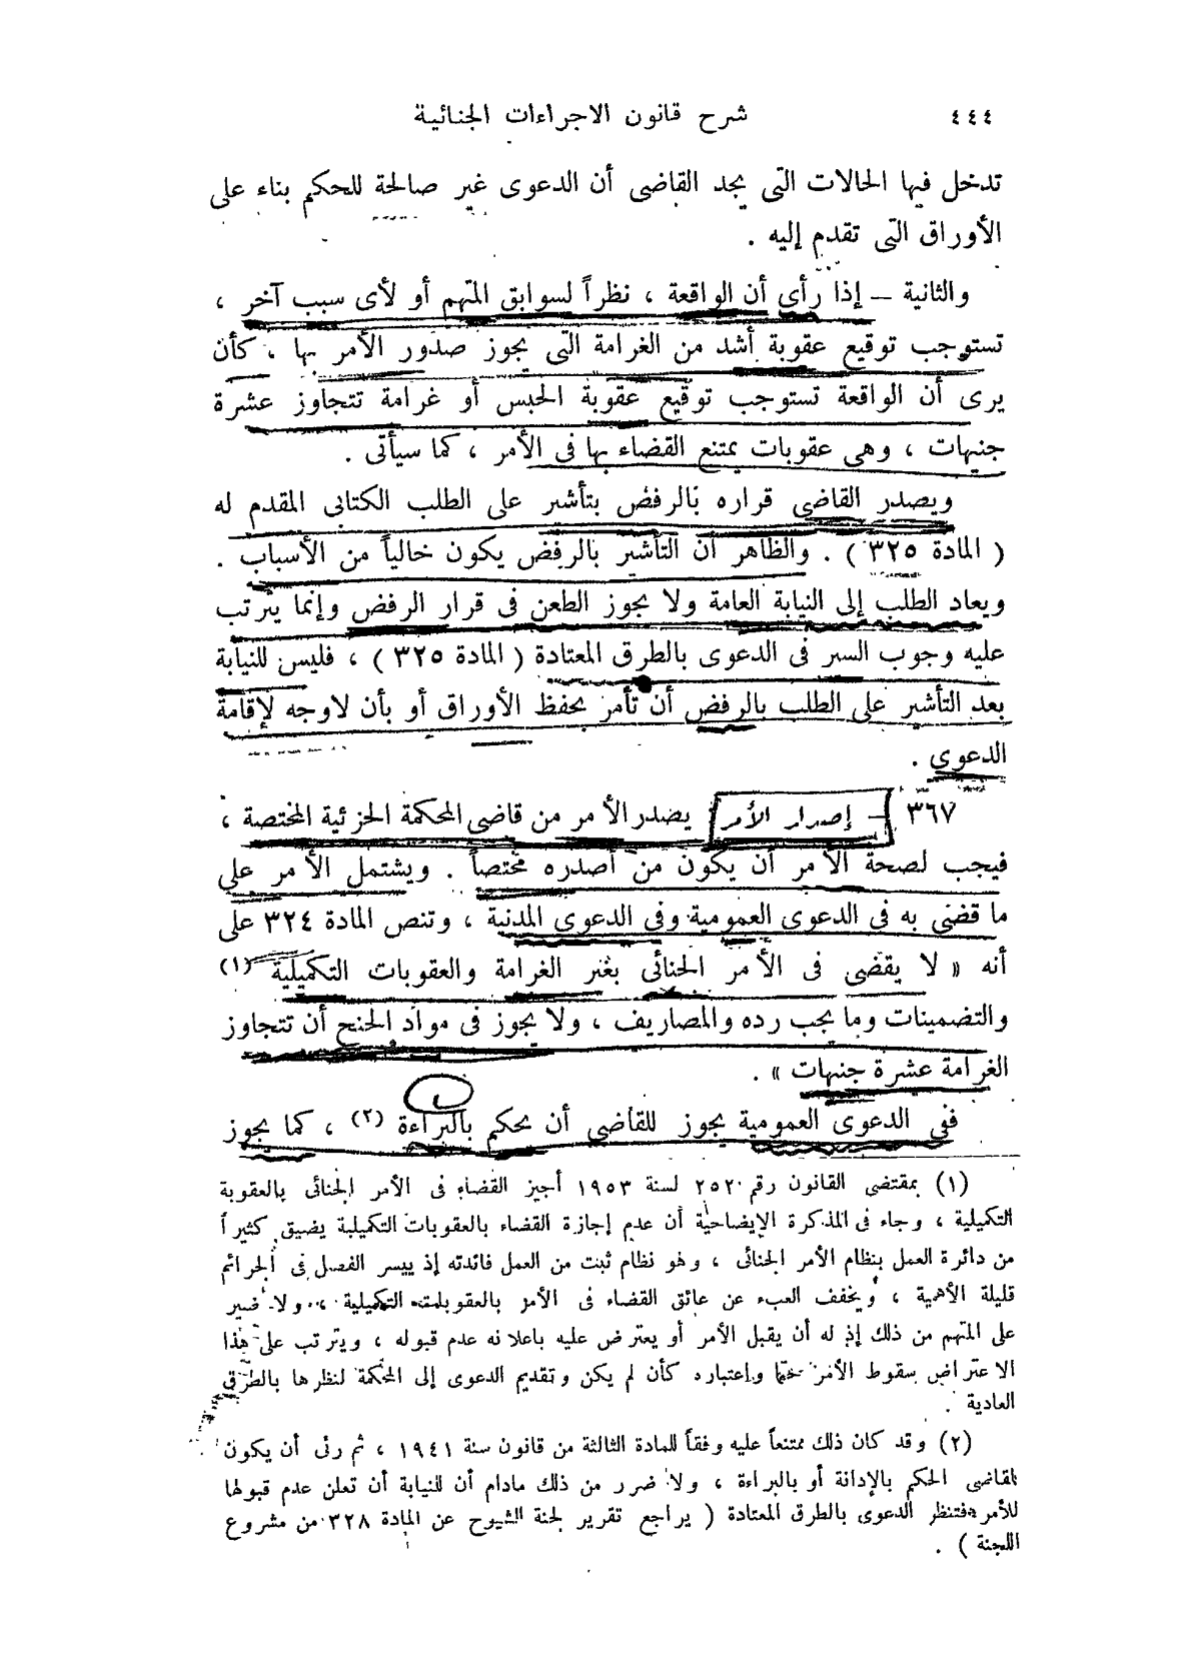 ٤٤٤
شرح قانون الاجراءات الجنائية
تدخل فيها الحالات التى يجد القاضى أن الدعوى غير صالحة للحكم بناء على
الأوراق التى تقدم إليه .
والثانية – إذا رأى أن الواقعة ، نظراً لسوابق المتهم أو لأى سبب آخر ،
تستوجب توقيع عقوبة أشد من الغرامة التى يجوز صدور الأمر بها ، كأن
يرى أن الواقعة تستوجب توقيع عقوبة الحبس أو غرامة تتجاوز عشرة
جنيهات ، وهى عقوبات يمتنع القضاء بها فى الأمر ، كما سيأتى .
ويصدر القاضى قراره بالرفض بتأشير على الطلب الكتابى المقدم له
( المادة ٣٢٥ ) . والظاهر أن التأشير بالرفض يكون خالياً من الأسباب .
ويعاد الطلب إلى النيابة العامة ولا يجوز الطعن فى قرار الرفض وإنما يترتب
عليه وجوب السير فى الدعوى بالطرق المعتادة ( المادة ٣٢٥ ) ، فليس للنيابة
بعد التأشير على الطلب بالرفض أن تأمر بحفظ الأوراق أو بأن لاوجه لإقامة
الدعوى .
٣٦٧ – إصدار الأمر يصدر الأمر من قاضى المحكمة الجزئية المختصة ،
فيجب لصحة الأمر أن يكون من أصدره مختصاً . ويشتمل الأمر على
ما قضى به فى الدعوى العمومية وفى الدعوى المدنية ، وتنص المادة ٣٢٤ على
أنه « لا يقضى فى الأمر الجنائى بغير الغرامة والعقوبات التكميلية (١)
والتضمينات وما يجب رده والمصاريف ، ولا يجوز فى مواد الجنح أن تتجاوز
الغرامة عشرة جنيهات » .
ففى الدعوى العمومية يجوز للقاضى أن يحكم بالبراءة (٢) ، كما يجوز
(١) بمقتضى القانون رقم ٢٥٢ لسنة ١٩٥٣ أجيز القضاء فى الأمر الجنائى بالعقوبة
التكميلية ، وجاء فى المذكرة الإيضاحية أن عدم إجازة القضاء بالعقوبات التكميلية يضيق كثيراً
من دائرة العمل بنظام الأمر الجنائى ، وهو نظام ثبت من العمل فائدته إذ ييسر الفصل فى الجرائم
قليلة الأهمية ، ويخفف العبء عن عاتق القضاء فى الأمر بالعقوبات التكميلية ، ولا ضير
على المتهم من ذلك إذ له أن يقبل الأمر أو يعترض عليه باعلانه عدم قبوله ، ويترتب على هذا
الاعتراض سقوط الأمر حتما وإعتباره كأن لم يكن وتقديم الدعوى إلى المحكمة لنظرها بالطرق
العادية .
(٢) وقد كان ذلك ممتنعاً عليه وفقاً للمادة الثالثة من قانون سنة ١٩٤١ ، ثم رئى أن يكون
لقاضى الحكم بالإدانة أو بالبراءة ، ولا ضرر من ذلك مادام أن للنيابة أن تعلن عدم قبولها
للأمر فتنظر الدعوى بالطرق المعتادة ( يراجع تقرير لجنة الشيوح عن المادة ٣٢٨ من مشروع
اللجنة ) .